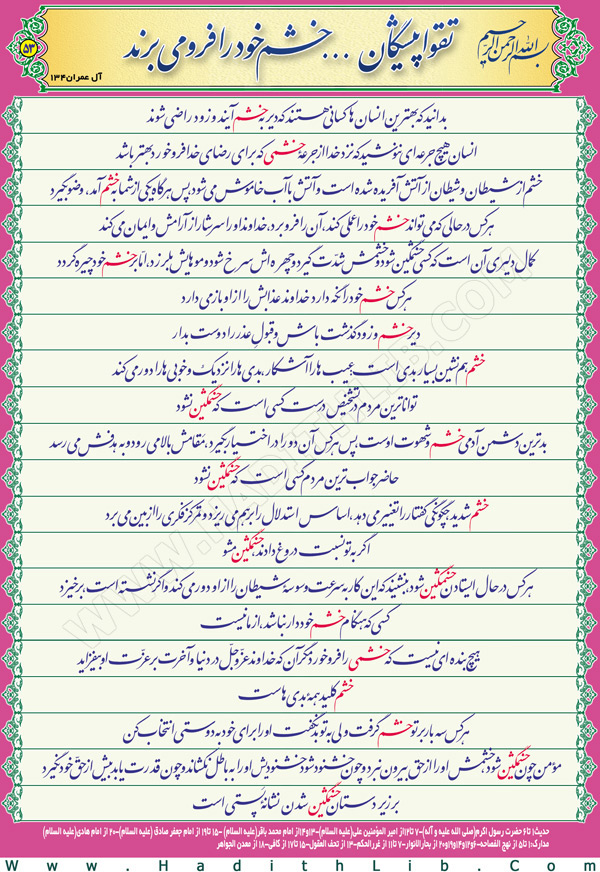 بسم الله الرحمن الرحیم
تقوا پیشگان ... خشم خود را فرو می برند
آل عمران ۱۳۴
۵۳
بدانید که بهترین انسان ها کسانی هستند که دیر به خشم آیند و زود راضی شوند
انسان هیچ جرعه ای ننوشید که نزد خدا از جرعۀ خشمی که برای رضای خدا فرو خورد بهتر باشد
خشم از شیطان و شیطان از آتش آفریده شده است و آتش با آب خاموش می شود، پس هرگاه یکی از شما به خشم آمد، وضو بگیرد
هرکس در حالی که می تواند خشم خود را عملی کند، آن را فرو برد، خداوند او را سرشار از آرامش و ایمان می کند
کمال دلیری آن است که کسی خشمگین شود و خشمش شدت گیرد و چهره اش سرخ شود و موهایش بلرزد، اما بر خشم خود چیره گردد
هرکس خشم خود را نگه دارد خداوند عذابش را از او باز می دارد
دیر خشم و زود گذشت باش و قبول عذر را دوست بدار
خشم هم نشین بسیار بدی است: عیب ها را آشکار، بدی ها را نزدیک و خوبی ها را دور می کند
تواناترین مردم در تشخیص درست کسی است که خشمگین نشود
بدترین دشمن آدمی خشم و شهوت اوست پس هرکس آن دو را در اختیار بگیرد، مقامش بالا می رود و به هدفش می رسد
حاضر جواب ترین مردم کسی است که خشمگین نشود
خشم شدید، چگونگی گفتار را تغییر می دهد، اساس استدلال را بر هم می ریزد و تمرکز فکری را از بین می برد
اگر به تو نسبت دروغ دادند، خشمگین مشو
هرکس در حال ایستادن خشمگین شود، بنشیند که این کار به سرعت وسوسۀ شیطان را از او دور می کند و اگر نشسته است، برخیزد
کسی که هنگام خشم خوددار نباشد، از ما نیست
هیچ بنده ای نیست که خشمی را فرو خورد مگر آن که خداوند عزوجل در دنیا و آخرت بر عزت او بیفزاید
خشم کلید همۀ بدی هاست
هرکس سه بار بر تو خشم گرفت ولی به تو بد نگفت، او را برای خود به دوستی انتخاب کن
مؤمن چون خشمگین شود، خشمش او را از حق بیرون نبرد و چون خشنود شود خشنودیش او را به باطل نکشاند و چون قدرت یابد بیش از حق خود نگیرد
بر زیر دستان خشمگین شدن نشانۀ پستی است
حدیث۱ تا۶ حضرت رسول اکرم(صلی الله علیه و آله)-۷ تا۱۲از امیر المؤمنین علی(علیه السلام)-۱۳و۱۴از امام محمد باقر(علیه السلام) -۱۵ تا۱۹ از امام جعفر صادق (علیه السلام)-۲۰ از امام هادی(علیه السلام)
WWW.HADITHLIB.COM
Www.HadithLib.Com